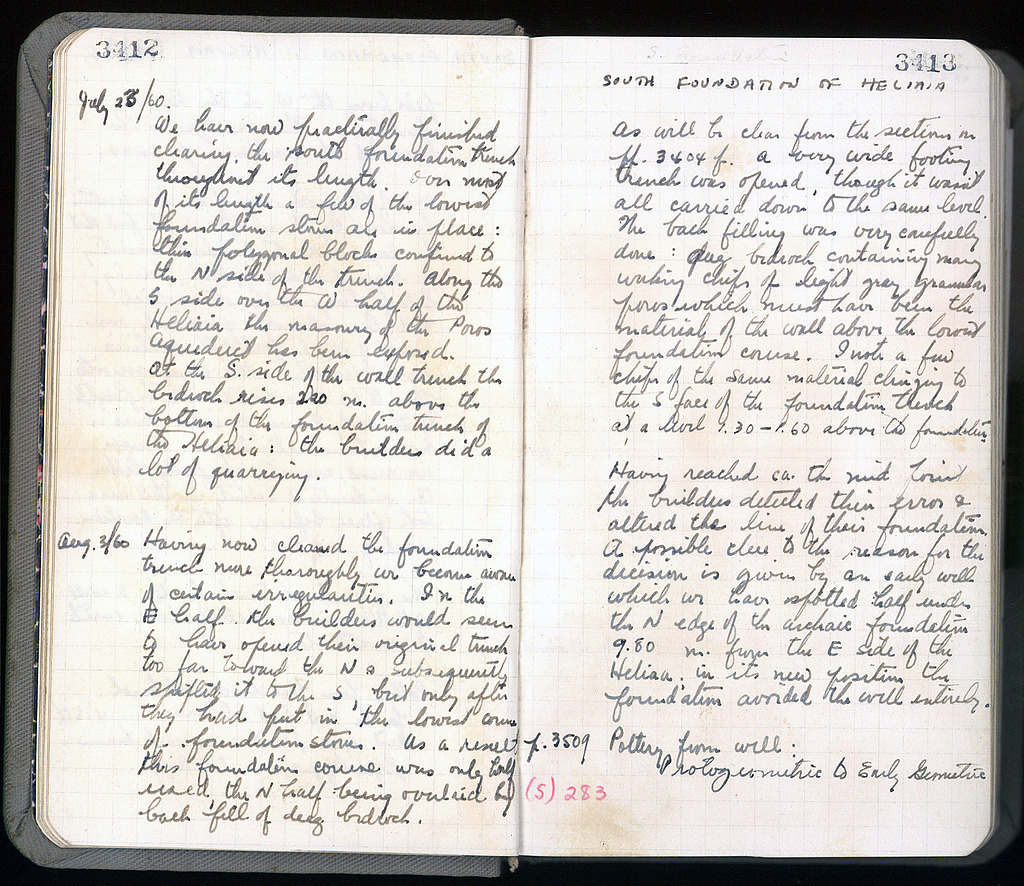 3412
July 23/60.
We have now practically finished
clearing the south foundation trench
throughout its length. Over most
of its length a few of the lowest
foundation stones are in place:
thin polygonal blocks confined to
the N side of the trench. Along the
S side over the W half of the
Heliaia the masonry of the Poros
Aqueduct has been exposed.
At the S. side of the wall trench the
bedrock rises 2.20 m. above the
bottom of the foundation trench of
the Heliaia: the builders did a
lot of quarrying.
Aug. 3/60 Having now cleaned the foundation
trench more thoroughly we become aware
of certain irregularities. In the
E half the builders would seem
to have opened their original trench
too far toward the N & subsequently
shifted it to the S, but only after
they had put in the lowest course
of foundation stones. As a result
this foundation course was only half
used, the N half being overlaid by
back fill of dug bedrock.
3413
S. Foundation
SOUTH FOUNDATION OF HELIAIA
As will be clear from the sections on
pp. 3404 f. a very wide footing
trench was opened, though it wasn't
all carried down to the same level.
The back filling was very carefully
done: dug bedrock containing many
working chips of light gray granular
poros which must have been the
material of the wall above the lowest
foundation course. I note a few
chips of the same material clinging to
the S face of the foundation trench
at a level 1.30-1.60 above the foundation.
Having reached ca. the mid point
the builders detected their error &
altered the line of their foundation.
A possible clue to the reason for the
decision is given by an early well
which we have spotted half under
the N edge of the archaic foundation
9.80 m. from the E side of the
Heliaia. In its new position the
foundation avoided the well entirely.
p. 3509 Pottery from well:
Protogeometric to Early Geometric
(S) 283